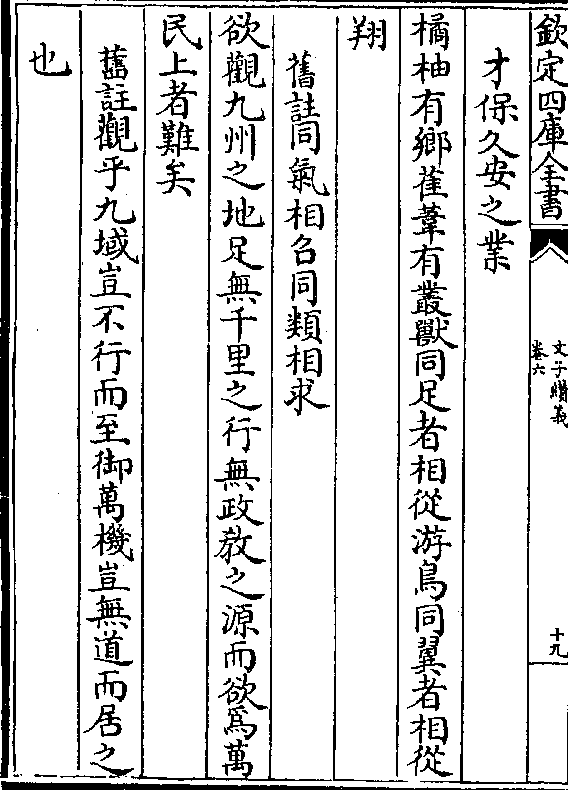 欽定四庫全書
文子纘義
卷六
十九
才保久安之業
橘柚有鄉萑葦有叢獸同足者相從游鳥同翼者相從
翔
舊註同氣相召同類相求
欲觀九州之地足無千里之行無政教之源而欲爲萬
民上者難矣
舊註觀乎九域豈不行而至御萬機豈無道而居之
也